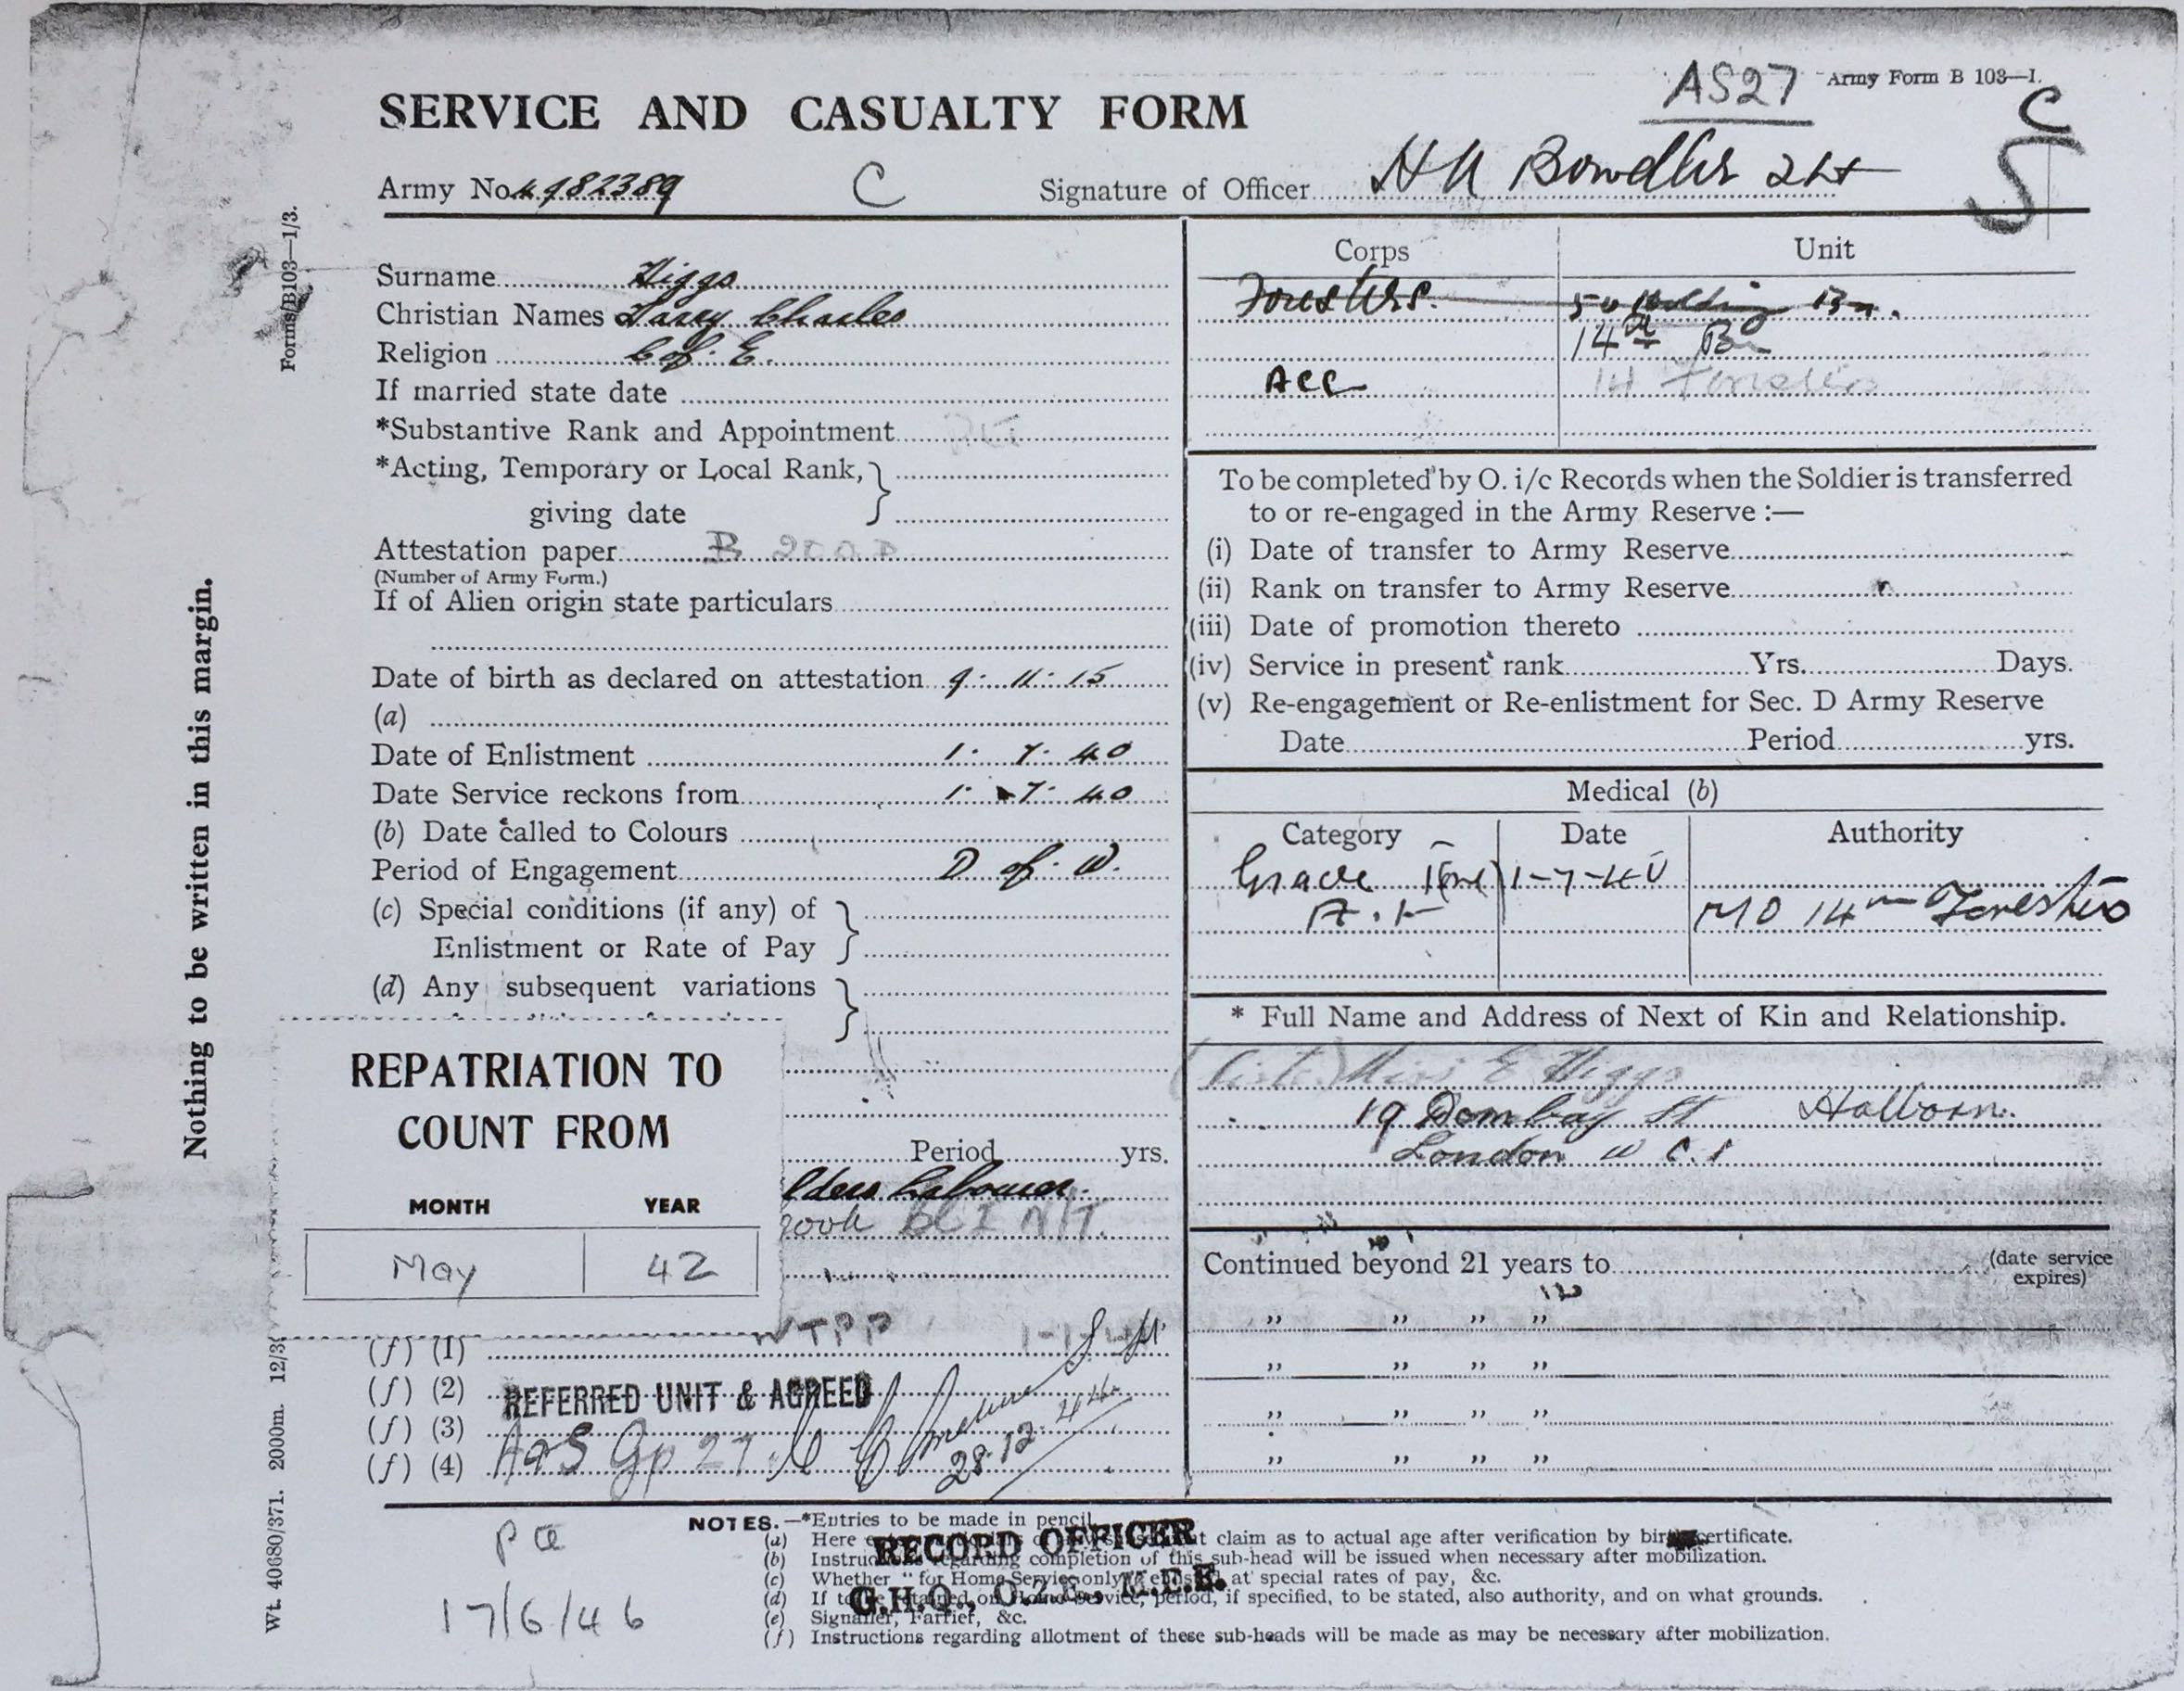 AS27 Army Form B 103—I.
C
SERVICE AND CASUALTY FORM
Army No. 4982389 C Signature of Officer H A Bowdler 2Lt
Forms/B103—1/3.
Nothing to be written in this margin.
Wt. 40680/371. 2000m. 12/39
Surname Higgs
Christian Names Harry Charles
Religion C of E.
If married state date
*Substantive Rank and Appointment
*Acting, Temporary or Local Rank,
giving date
Attestation paper B
(Number of Army Form.)
If of Alien origin state particulars
Date of birth as declared on attestation 9. 11. 15
(a)
Date of Enlistment 1. 7. 40
Date Service reckons from 1. 7. 40
(b) Date called to Colours
Period of Engagement D of W.
(c) Special conditions (if any) of
Enlistment or Rate of Pay
(d) Any subsequent variations
REPATRIATION TO
COUNT FROM
MONTH YEAR
May 42
Period yrs.
Labourer.
WTPP
(f) (1)
(f) (2) REFERRED UNIT & AGREED
(f) (3)
(f) (4) A&S Gp 27 28.12.44
Corps Unit
Foresters. 50 Holding Bn.
14th Bn
ACC 14 Foresters
To be completed by O. i/c Records when the Soldier is transferred
to or re-engaged in the Army Reserve :—
(i) Date of transfer to Army Reserve
(ii) Rank on transfer to Army Reserve
(iii) Date of promotion thereto
(iv) Service in present rank Yrs. Days.
(v) Re-engagement or Re-enlistment for Sec. D Army Reserve
Date Period yrs.
Medical (b)
Category Date Authority
Grade I (one) 1-7-40
A.1 MO 14th Foresters
* Full Name and Address of Next of Kin and Relationship.
(Sister) Miss E Higgs
19 Dombey St Holborn.
London W C.1
Continued beyond 21 years to (date service
expires)
„ „ „ „
„ „ „ „
„ „ „ „
„ „ „ „
17/6/46
NOTES.—*Entries to be made in pencil
(a) Here claim as to actual age after verification by birth certificate.
(b) Instructions regarding completion of this sub-head will be issued when necessary after mobilization.
(c) Whether “ for Home Service only ” enlisted at special rates of pay, &c.
(d) If to be retained on Home Service, period, if specified, to be stated, also authority, and on what grounds.
(e) Signaller, Farrier, &c.
(f) Instructions regarding allotment of these sub-heads will be made as may be necessary after mobilization.
RECORD OFFICER
G.H.Q., O.2.E., M.E.F.